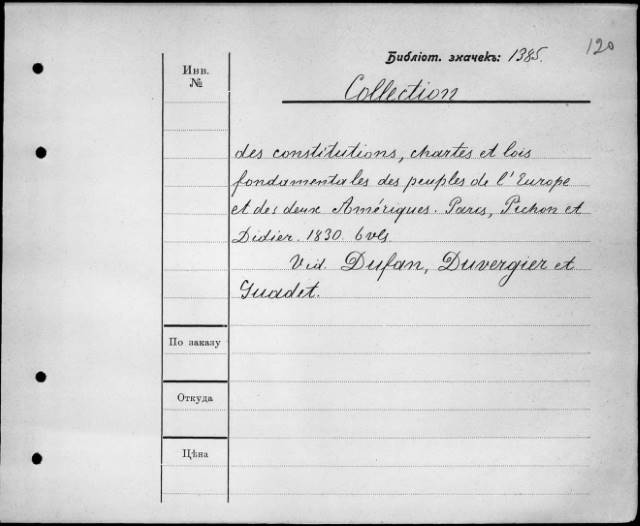 120
Библіот. значекъ: 1385.
Инв.
№
Collection
des constitutions, chartes et lois
fondamentales des peuples de l'Europe
et des deux Amériques. Paris, Pichon et
Didier. 1830. 6 vls
Vid. Dufan, Duvergier et
Guadet.
По заказу
Откуда
Цѣна